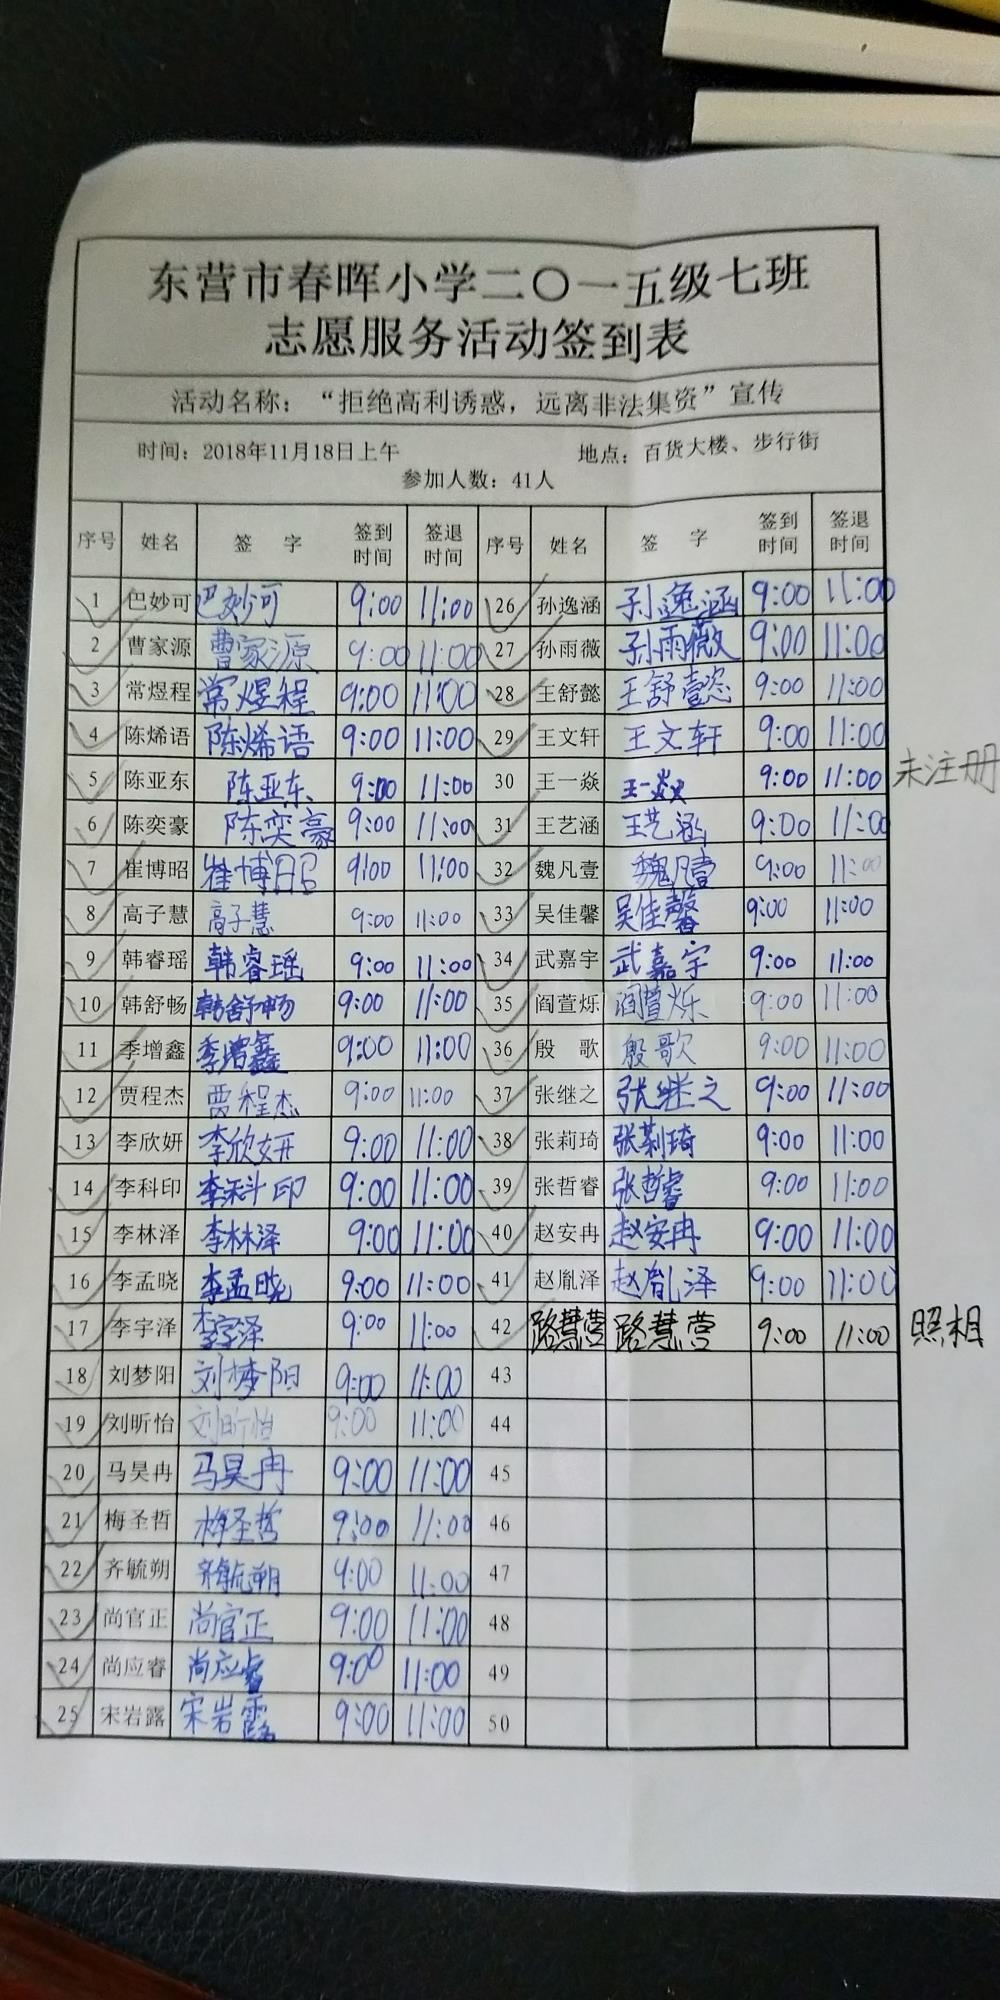 东营市春晖小学二〇一五级七班
志愿服务活动签到表
活动名称：“拒绝高利诱惑，远离非法集资”宣传
时间：2018年11月18日上午 地点：百货大楼、步行街
参加人数：41人
序号 姓名 签 字 签到时间 签退时间 序号 姓名 签 字 签到时间 签退时间
1 巴妙可 巴妙可 9:00 11:00 26 孙逸涵 孙逸涵 9:00 11:00
2 曹家源 曹家源 9:00 11:00 27 孙雨薇 孙雨薇 9:00 11:00
3 常煜程 常煜程 9:00 11:00 28 王舒懿 王舒懿 9:00 11:00
4 陈烯语 陈烯语 9:00 11:00 29 王文轩 王文轩 9:00 11:00
5 陈亚东 陈亚东 9:00 11:00 30 王一焱 王一焱 9:00 11:00 未注册
6 陈奕豪 陈奕豪 9:00 11:00 31 王艺涵 王艺涵 9:00 11:00
7 崔博昭 崔博昭 9:00 11:00 32 魏凡壹 魏凡壹 9:00 11:00
8 高子慧 高子慧 9:00 11:00 33 吴佳馨 吴佳馨 9:00 11:00
9 韩睿瑶 韩睿瑶 9:00 11:00 34 武嘉宇 武嘉宇 9:00 11:00
10 韩舒畅 韩舒畅 9:00 11:00 35 阎萱烁 阎萱烁 9:00 11:00
11 季增鑫 季增鑫 9:00 11:00 36 殷 歌 殷歌 9:00 11:00
12 贾程杰 贾程杰 9:00 11:00 37 张继之 张继之 9:00 11:00
13 李欣妍 李欣妍 9:00 11:00 38 张莉琦 张莉琦 9:00 11:00
14 李科印 李科印 9:00 11:00 39 张哲睿 张哲睿 9:00 11:00
15 李林泽 李林泽 9:00 11:00 40 赵安冉 赵安冉 9:00 11:00
16 李孟晓 李孟晓 9:00 11:00 41 赵胤泽 赵胤泽 9:00 11:00
17 李宇泽 李宇泽 9:00 11:00 42 路慧营 路慧营 9:00 11:00 照相
18 刘梦阳 刘梦阳 9:00 11:00 43
19 刘昕怡 刘昕怡 9:00 11:00 44
20 马昊冉 马昊冉 9:00 11:00 45
21 梅圣哲 梅圣哲 9:00 11:00 46
22 齐毓朔 齐毓朔 9:00 11:00 47
23 尚官正 尚官正 9:00 11:00 48
24 尚应睿 尚应睿 9:00 11:00 49
25 宋岩露 宋岩露 9:00 11:00 50